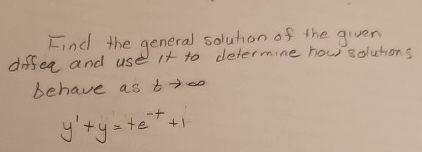 Find the general solution of the given
diffeq and use it to determine how solutions
behave as t→∞
y' + y = te^-t + 1